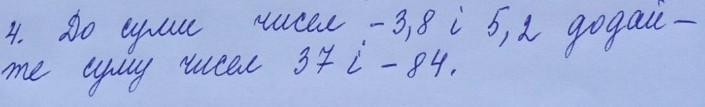 4. До суми чисел -3,8 і 5,2 додай-
те суму чисел 37 і -84.